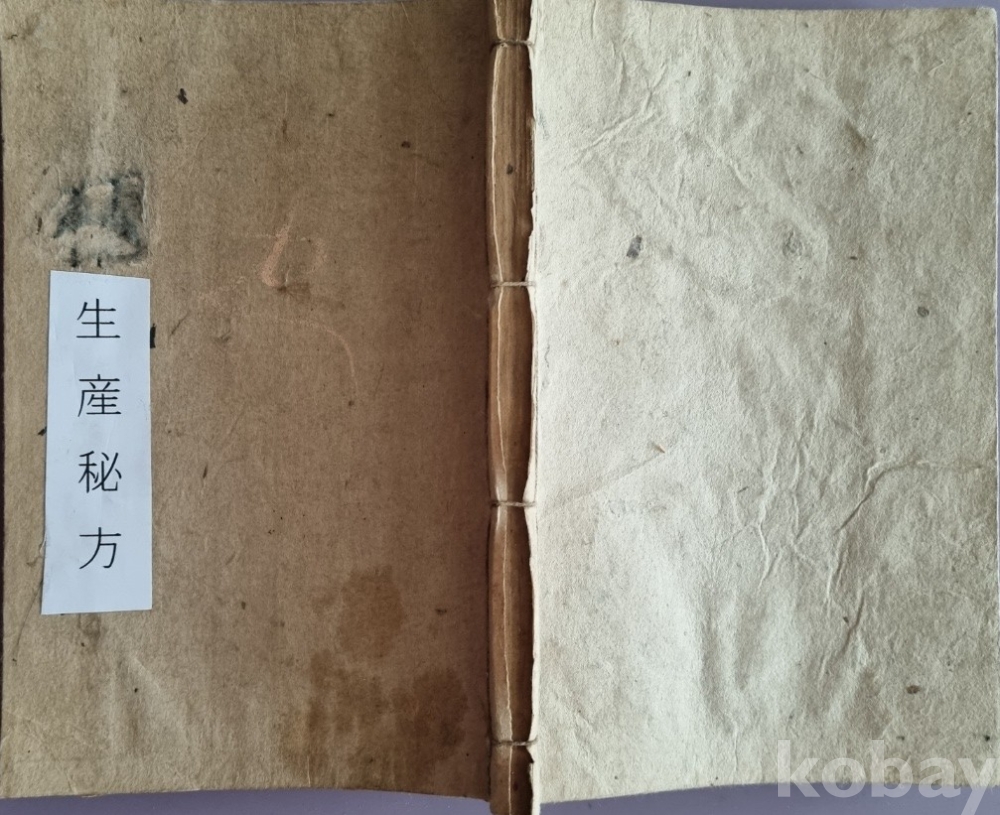 生産秘方
kobay